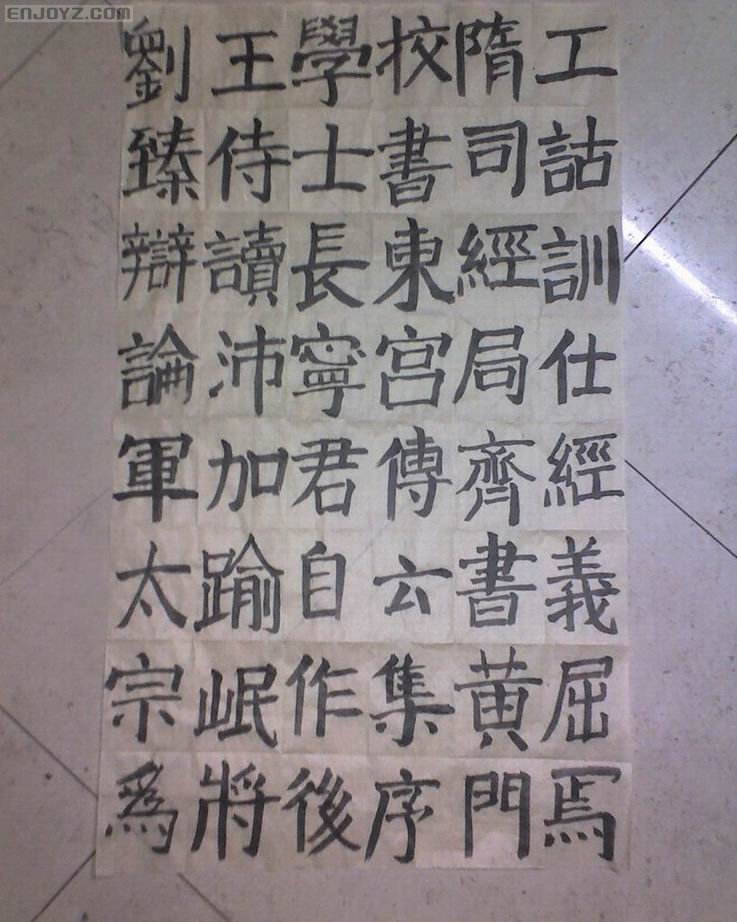 ENJOYZ.COM
工詁訓仕經義屈焉
隋司經局齊書黄門
挍書東宮傳云集序
學士長寧君自作後
王侍讀沛加踰岷將
劉臻辯論軍太宗爲